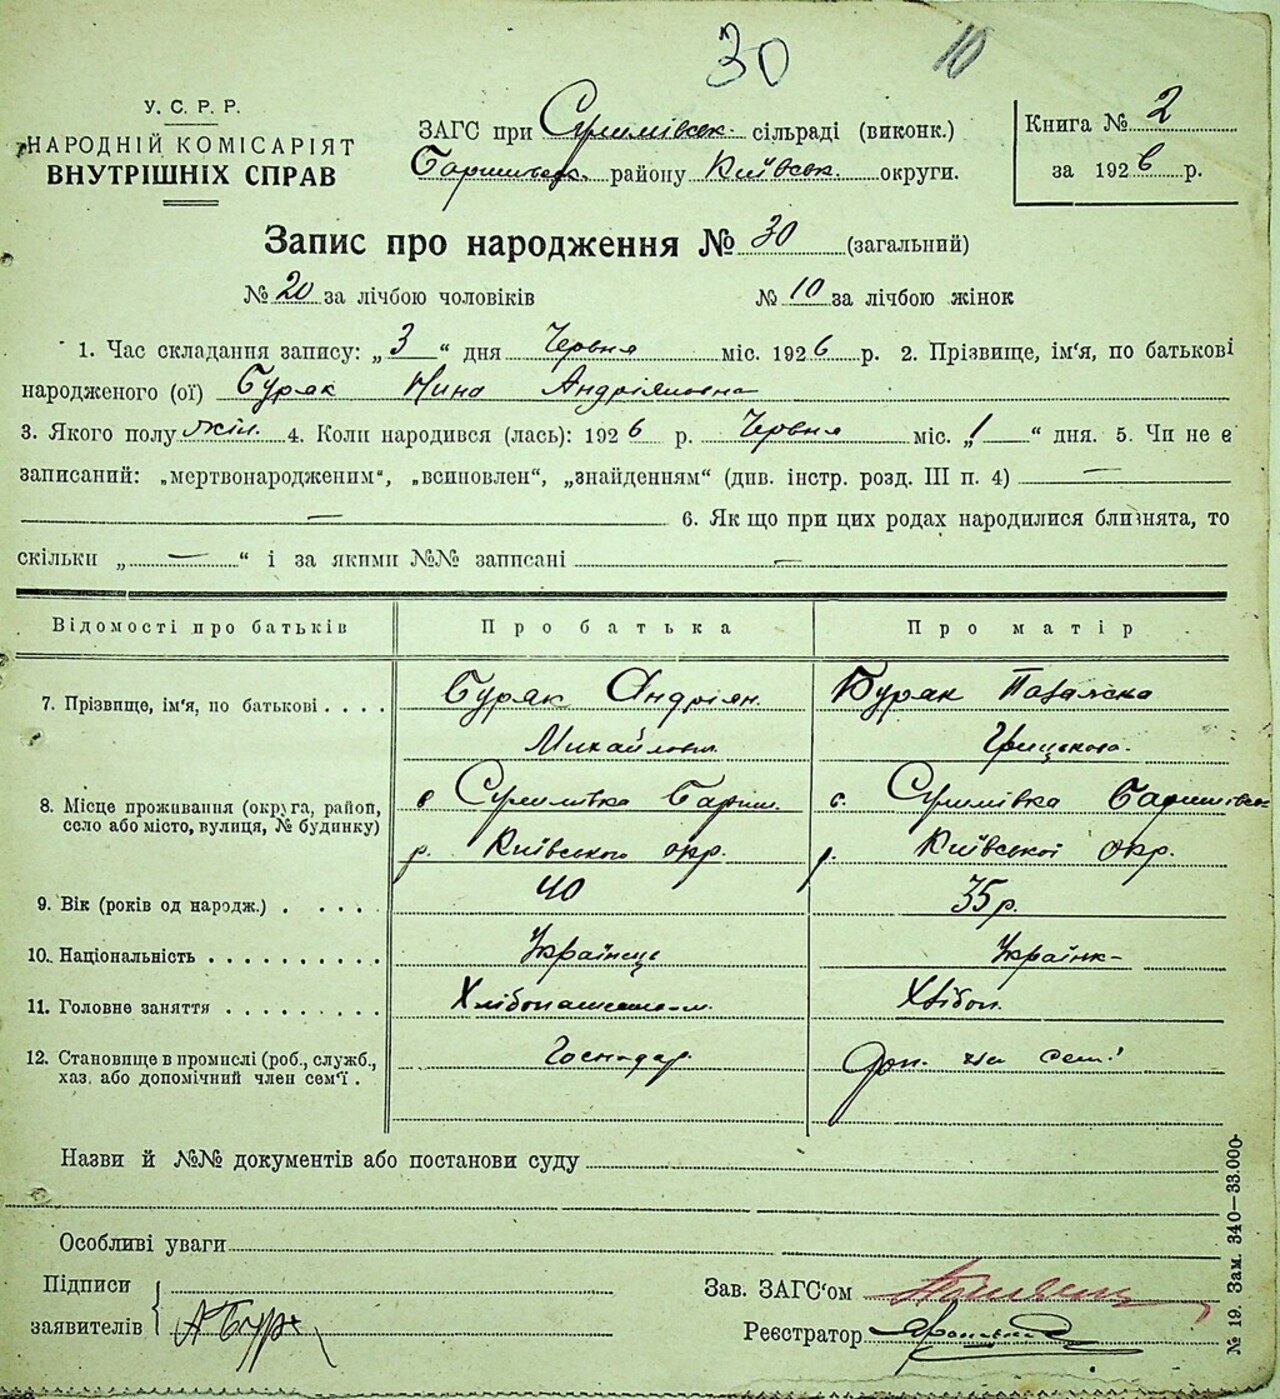 30 10
У. С. Р. Р.
НАРОДНІЙ КОМІСАРІЯТ
ВНУТРІШНІХ СПРАВ
ЗАГС при Стримівськ. сільраді (виконк.)
Баришівськ. району Київськ. округи.
Книга № 2
за 1926 р.
Запис про народження № 30 (загальний)
№ 20 за лічбою чоловіків № 10 за лічбою жінок
1. Час складання запису: „3“ дня Червня міс. 1926 р. 2. Прізвище, ім‘я, по батькові
народженого (ої) Буряк Нина Андріяновна
3. Якого полу жін. 4. Коли народився (лась): 1926 р. Червня міс. „1“ дня. 5. Чи не є
записаний: „мертвонародженим“, „всиновлен“, „знайденням“ (див. інстр. розд. III п. 4) —
— 6. Як що при цих родах народилися близнята, то
скільки „—“ і за якими №№ записані —
Відомості про батьків Про батька Про матір
7. Прізвище, ім‘я, по батькові . . . . Буряк Андріян. Буряк
Михайлович Грицьковна.
8. Місце проживання (округа, район, с Стримівка Бариш. с. Стримівка Баришівськ
село або місто, вулиця, № будинку)
р. Київського окр. р. Київської окр.
9. Вік (років од народж.) . . . . . 40 35 р.
10. Національність . . . . . . . . . . Українець Українк-
11. Головне заняття . . . . . . . . . Хлібопашеств-м. Хлібоп.
12. Становище в промислі (роб., служб., Господар. Доп. чл сем'ї
хаз. або допомічний член сем‘ї .
Назви й №№ документів або постанови суду
Особливі уваги
Підписи
заявителів А Буряк
Зав. ЗАГС‘ом
Реєстратор
№ 19. Зам. 340—33.000